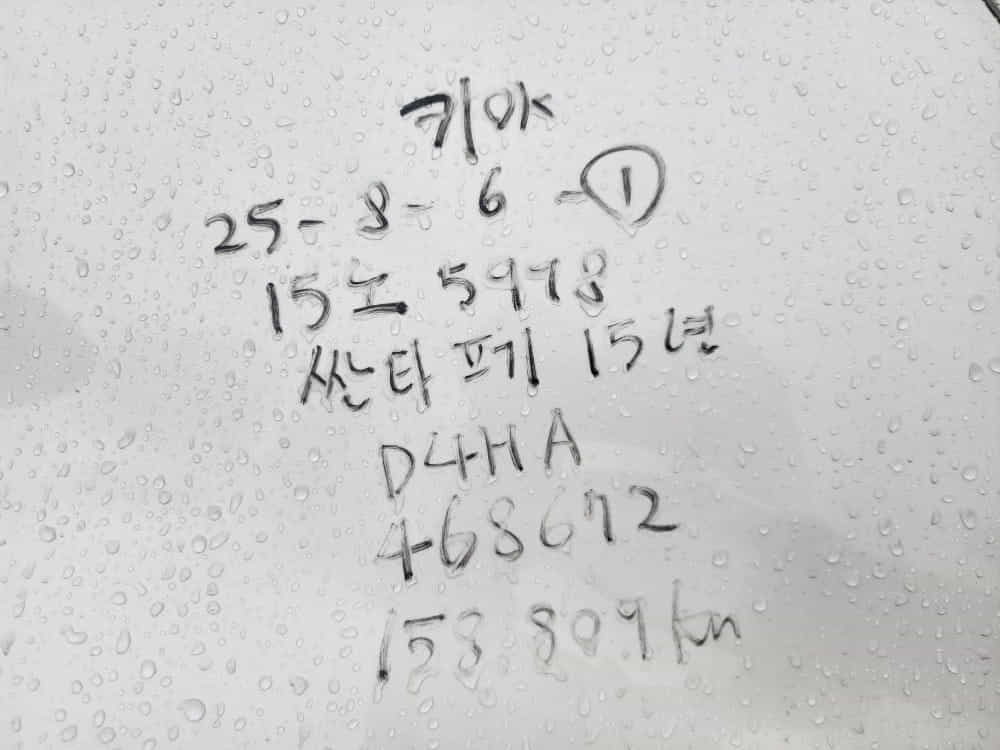 키야
25-8-6-①
15노 5978
싼타 프기 15년
D4HA
468672
158.809km